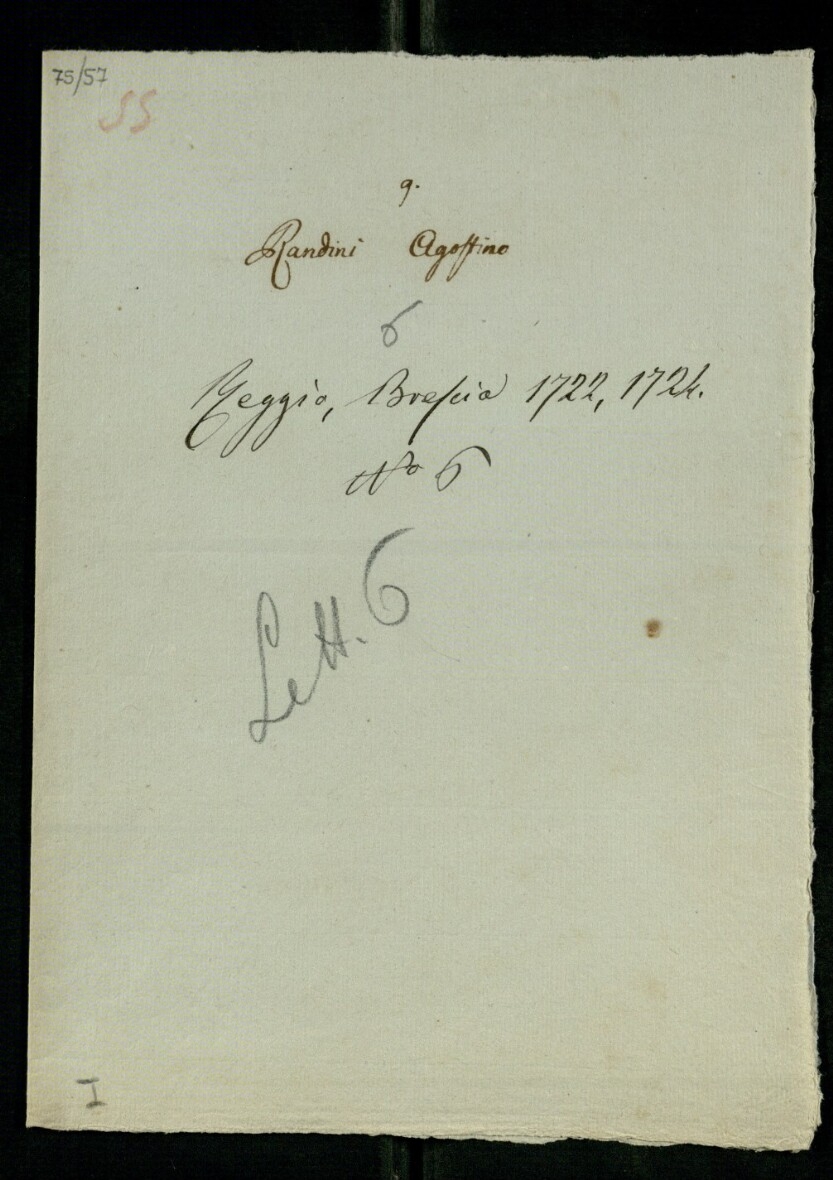 75/57
55
9.
Randini Agoſtino
6
Reggio, Breſcia 1722, 1724.
No 6
Lett. 6
I